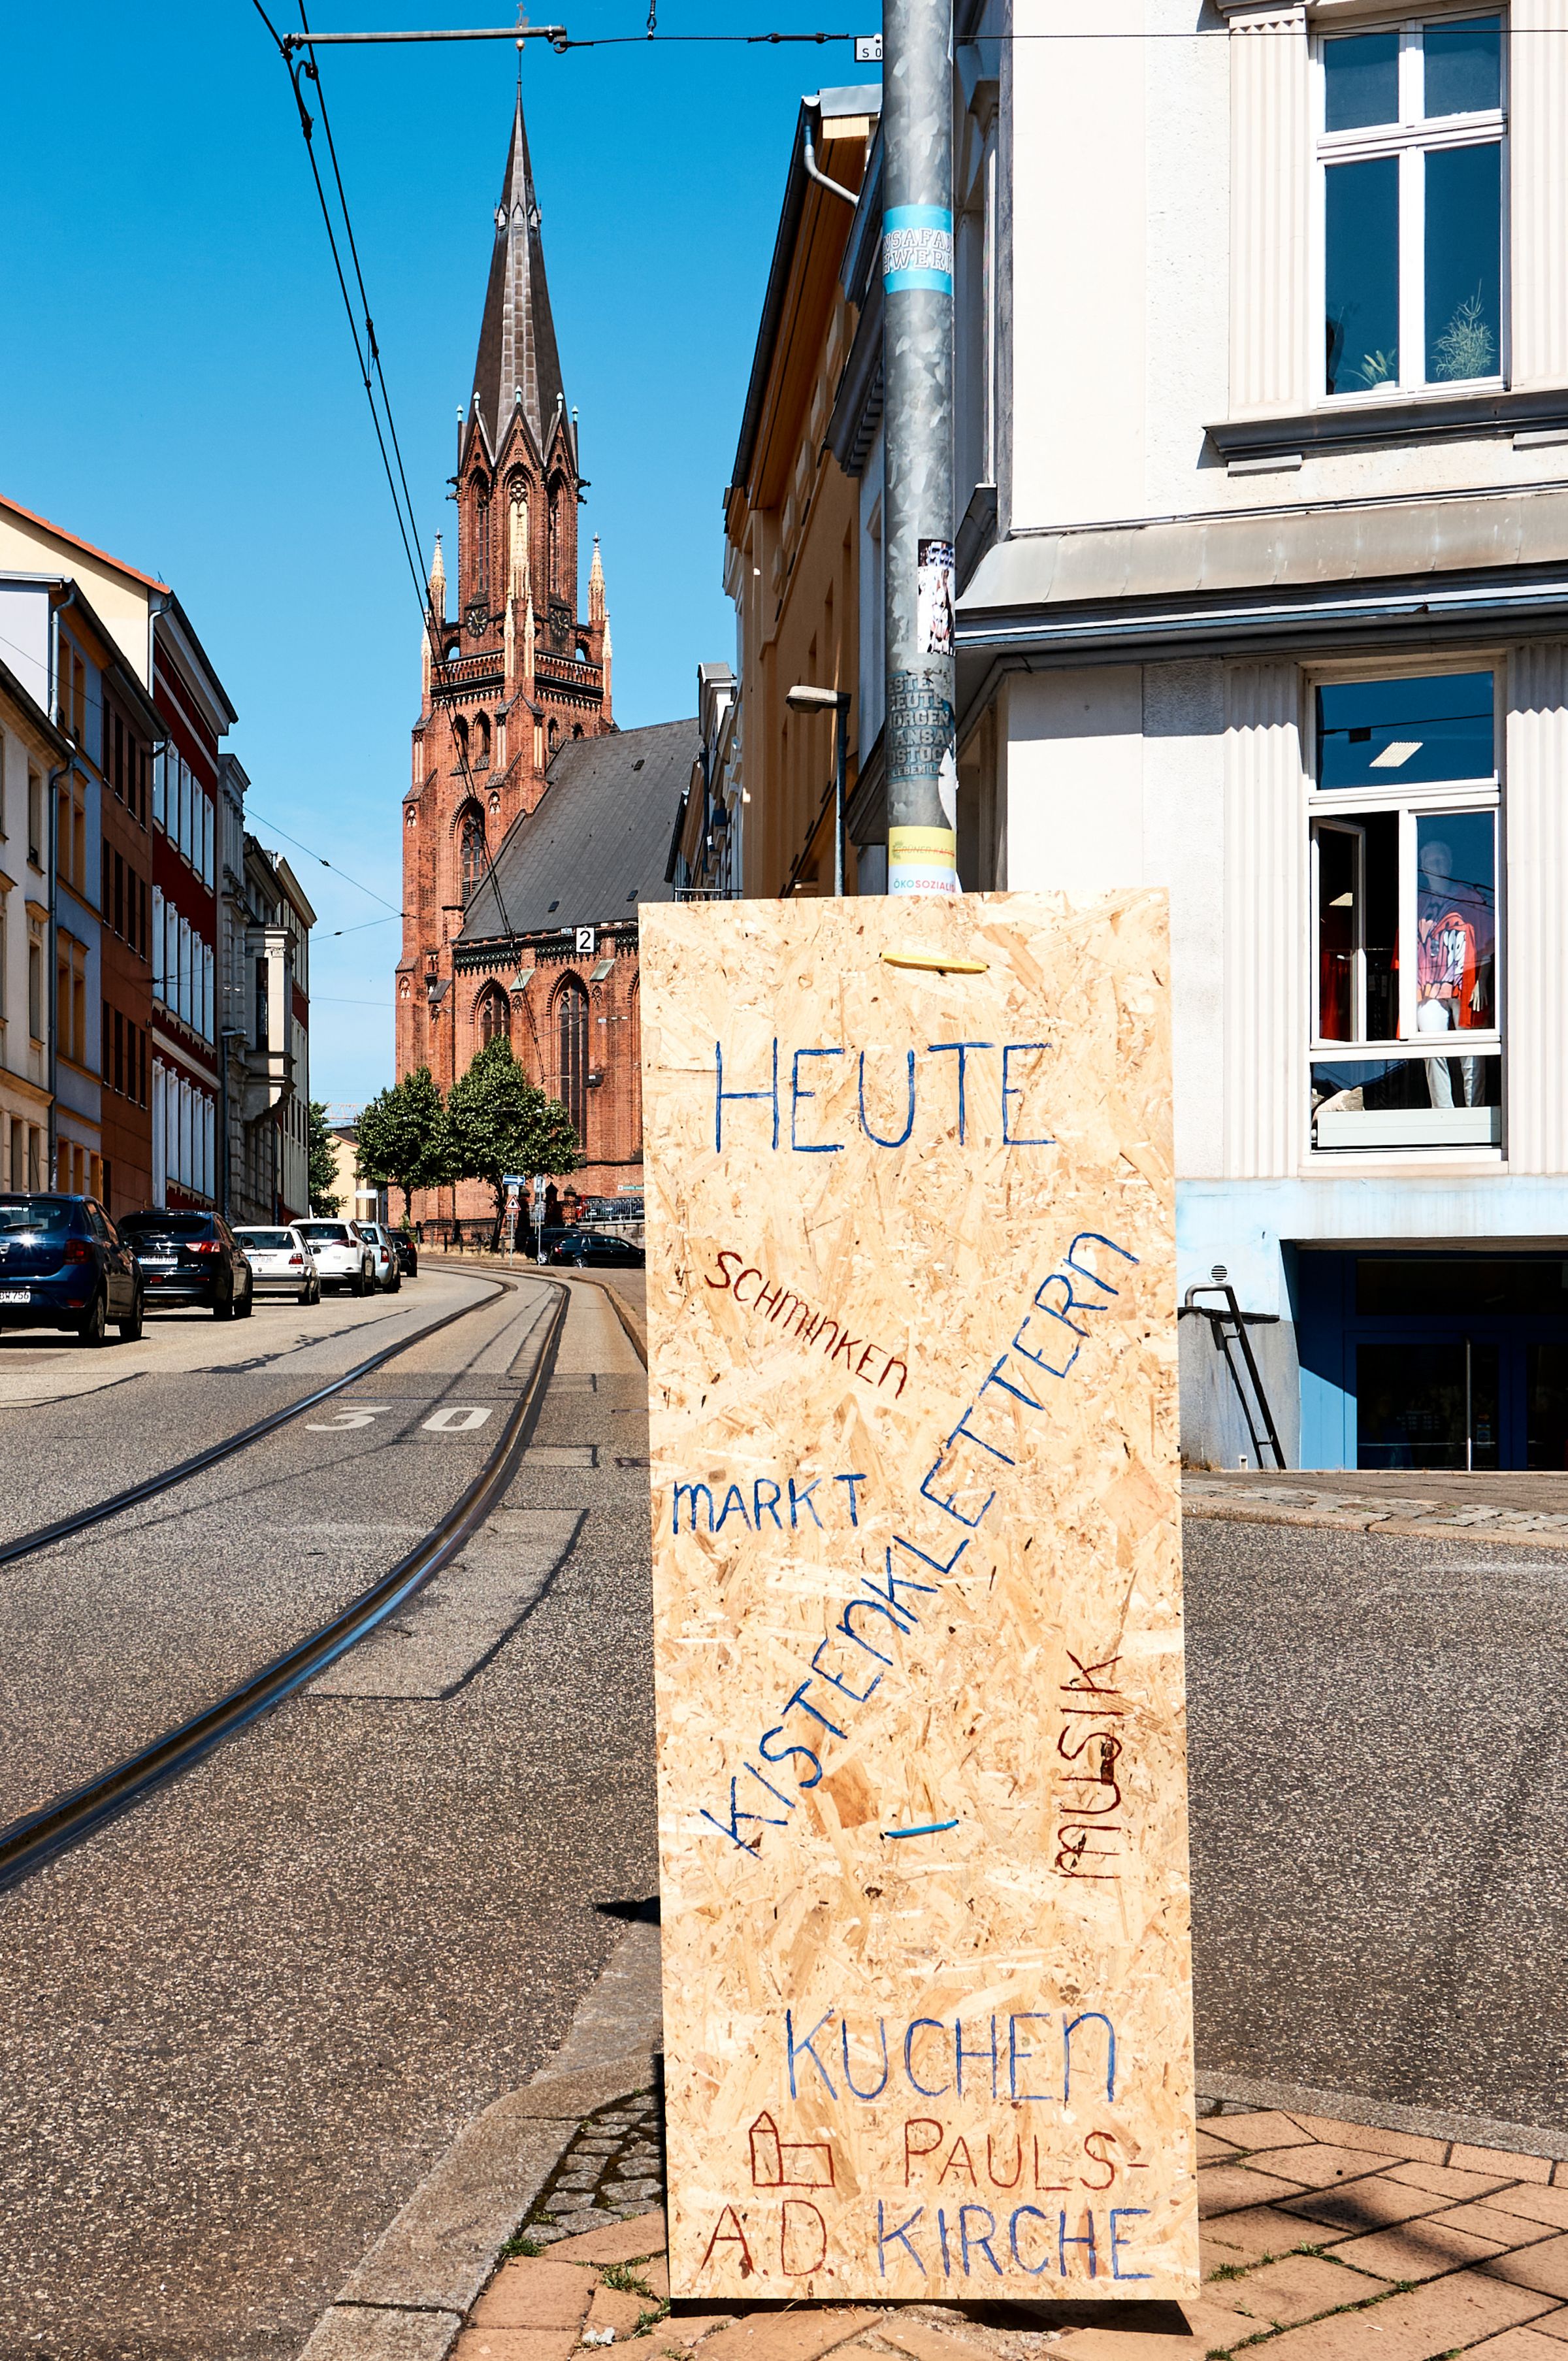 HEUTE
SCHMINKEN
MARKT
KISTENKLETTERN
MUSIK
KUCHEN
PAULS-
A.D. KIRCHE
30
2
ÖKOSOZIALIS